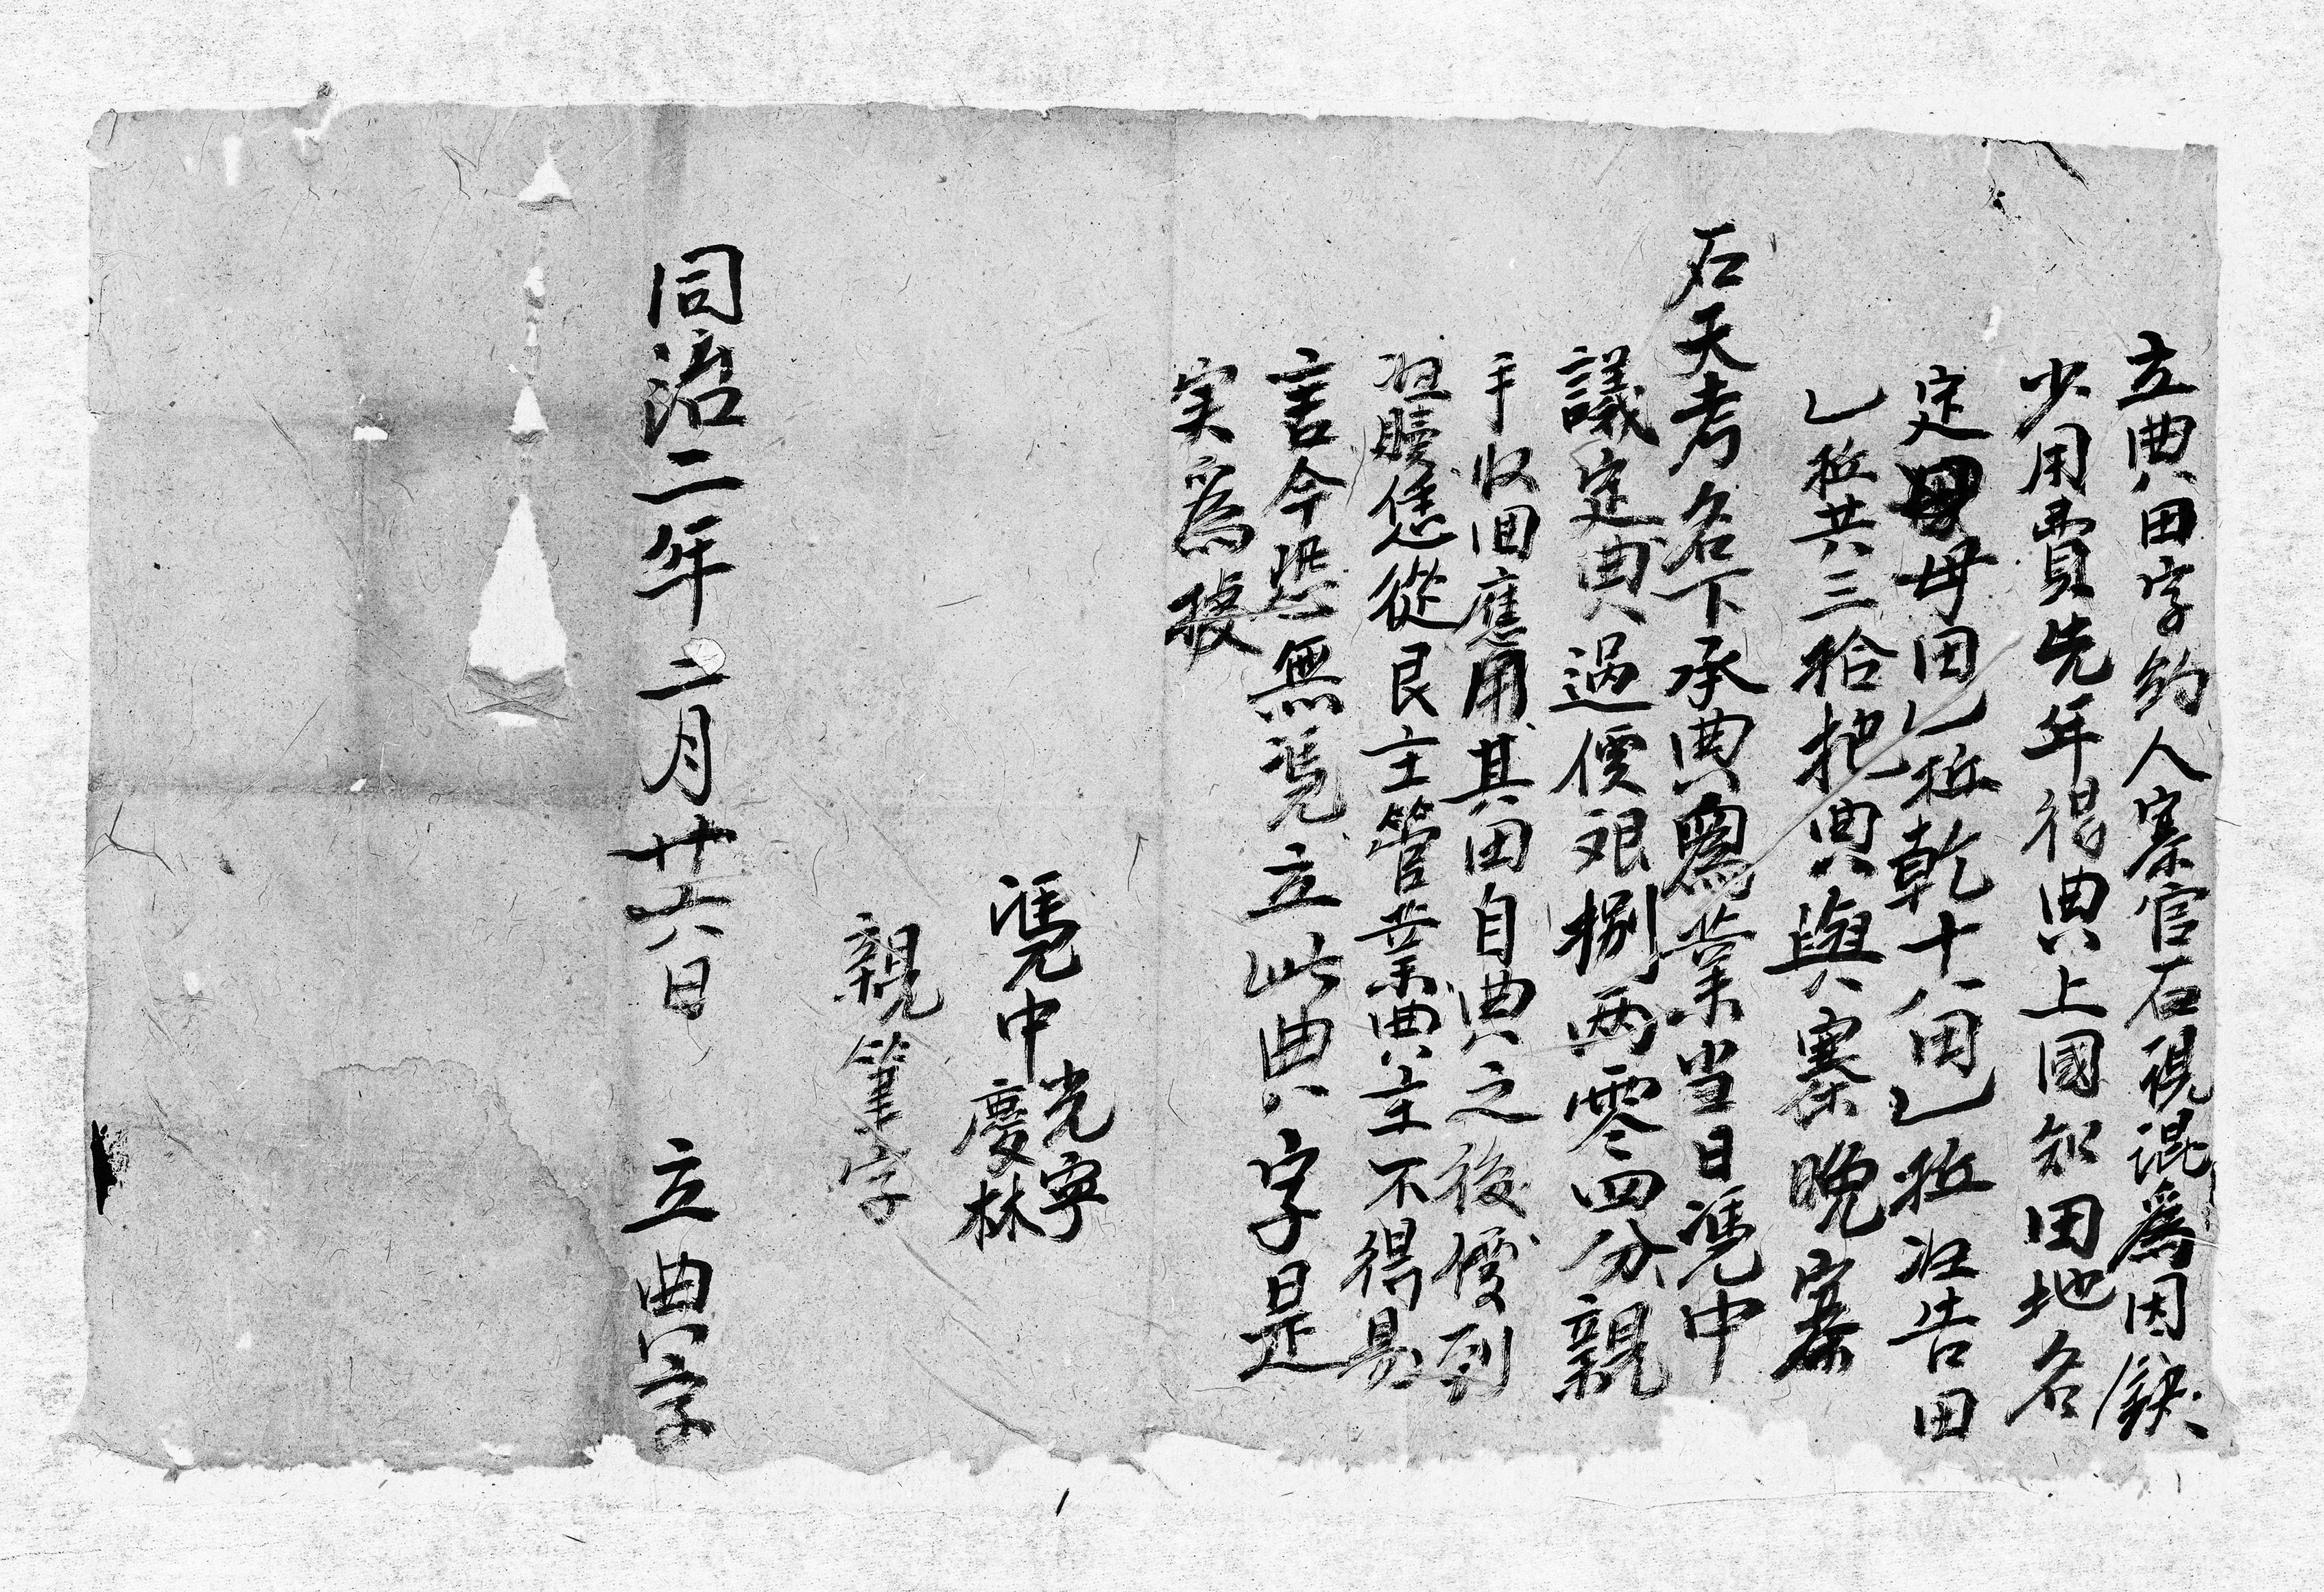 立典田字約人寨官石視混為因缺
少用費先年得典上國知田地名
定母田乚坵乾十八田乚坵汪告田
乚坵共三拾把典與寨晚寨
石天考名下承典為業当日憑中
議定典過價艮捌两零四分親
手收回應用其田自典之後價到
汪贖恁從艮主管業典主不得易
言今恐無憑立此典字是
实為據
憑中光寧
慶林
親筆字
同治二年二月廿六日 立典字